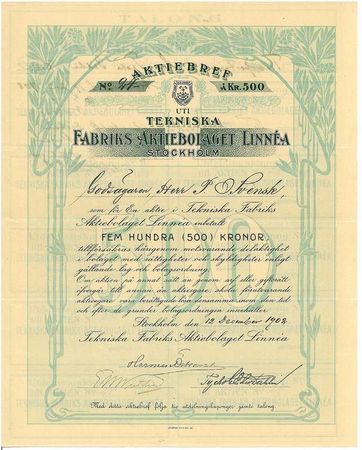 AKTIEBREF
No
á Kr. 500
UTI
TEKNISKA
FABRIKS AKTIEBOLAGET LINNÉA
STOCKHOLM
Godsägaren, Herr P O Svensk,
som för En aktie i Tekniska Fabriks
Aktiebolaget Linnéa inbetalt
FEM HUNDRA (500) KRONOR,
tillförsäkras härigenom motsvarande delaktighet
i bolaget med rättigheter och skyldigheter enligt
gällande lag och bolagsordning.
Om aktien på annat sätt än genom arf eller giftorätt
öfvergår till annan än aktieegare, skola förutvarande
aktieegare vara berättigade lösa densamma inom den tid
och efter grunder bolagsordningen innehåller.
Stockholm den 12 December 1902
Tekniska Fabriks Aktiebolaget Linnéa
Med detta aktiebref följa tio utdelningskuponger jämte talong.